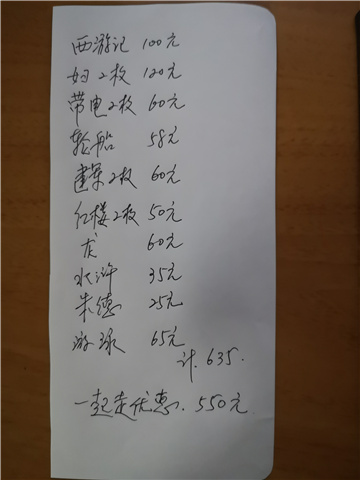 西游记 100元
妇2枚 120元
带电2枚 60元
轮船 58元
建军2枚 60元
红楼2枚 50元
龙 60元
水浒 35元
朱德 25元
游泳 65元
计.635.
一起走优惠.550元